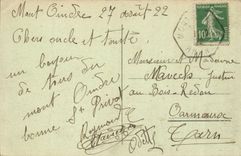 Mont Cindre 27 août 22
Chers oncle et tante
un bonjour
de tous du
mont Cindre
bonne St Privat
Raymonde
Monsieur et Madame
Justin
au Bois Redon
Carmaux
Tarn
10